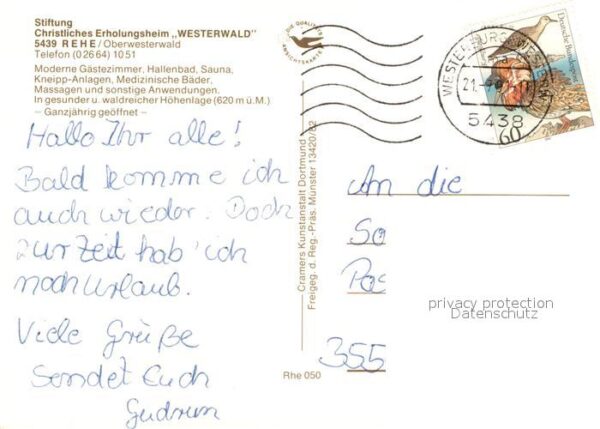 Stiftung
Christliches Erholungsheim „WESTERWALD"
5439 REHE/Oberwesterwald
Telefon (02664) 1051
Moderne Gästezimmer, Hallenbad, Sauna,
Kneipp-Anlagen, Medizinische Bäder,
Massagen und sonstige Anwendungen.
In gesunder u. waldreicher Höhenlage (620 m ü.M.)
– Ganzjährig geöffnet –
Hallo Ihr alle!
Bald komme ich
auch wieder. Doch
zur Zeit hab' ich
noch Urlaub.
Viele Grüße
Sendet Euch
Gudrun
DIE QUALITÄTS
ANSICHTSKARTE
Cramers Kunstanstalt Dortmund
Freigeg. d. Reg.-Präs. Münster 13420/82
Rhe 050
Deutsche Bundespost
60
WESTERBURG, WESTERW
21.
5438
An die
So
Pos
355
privacy protection
Datenschutz